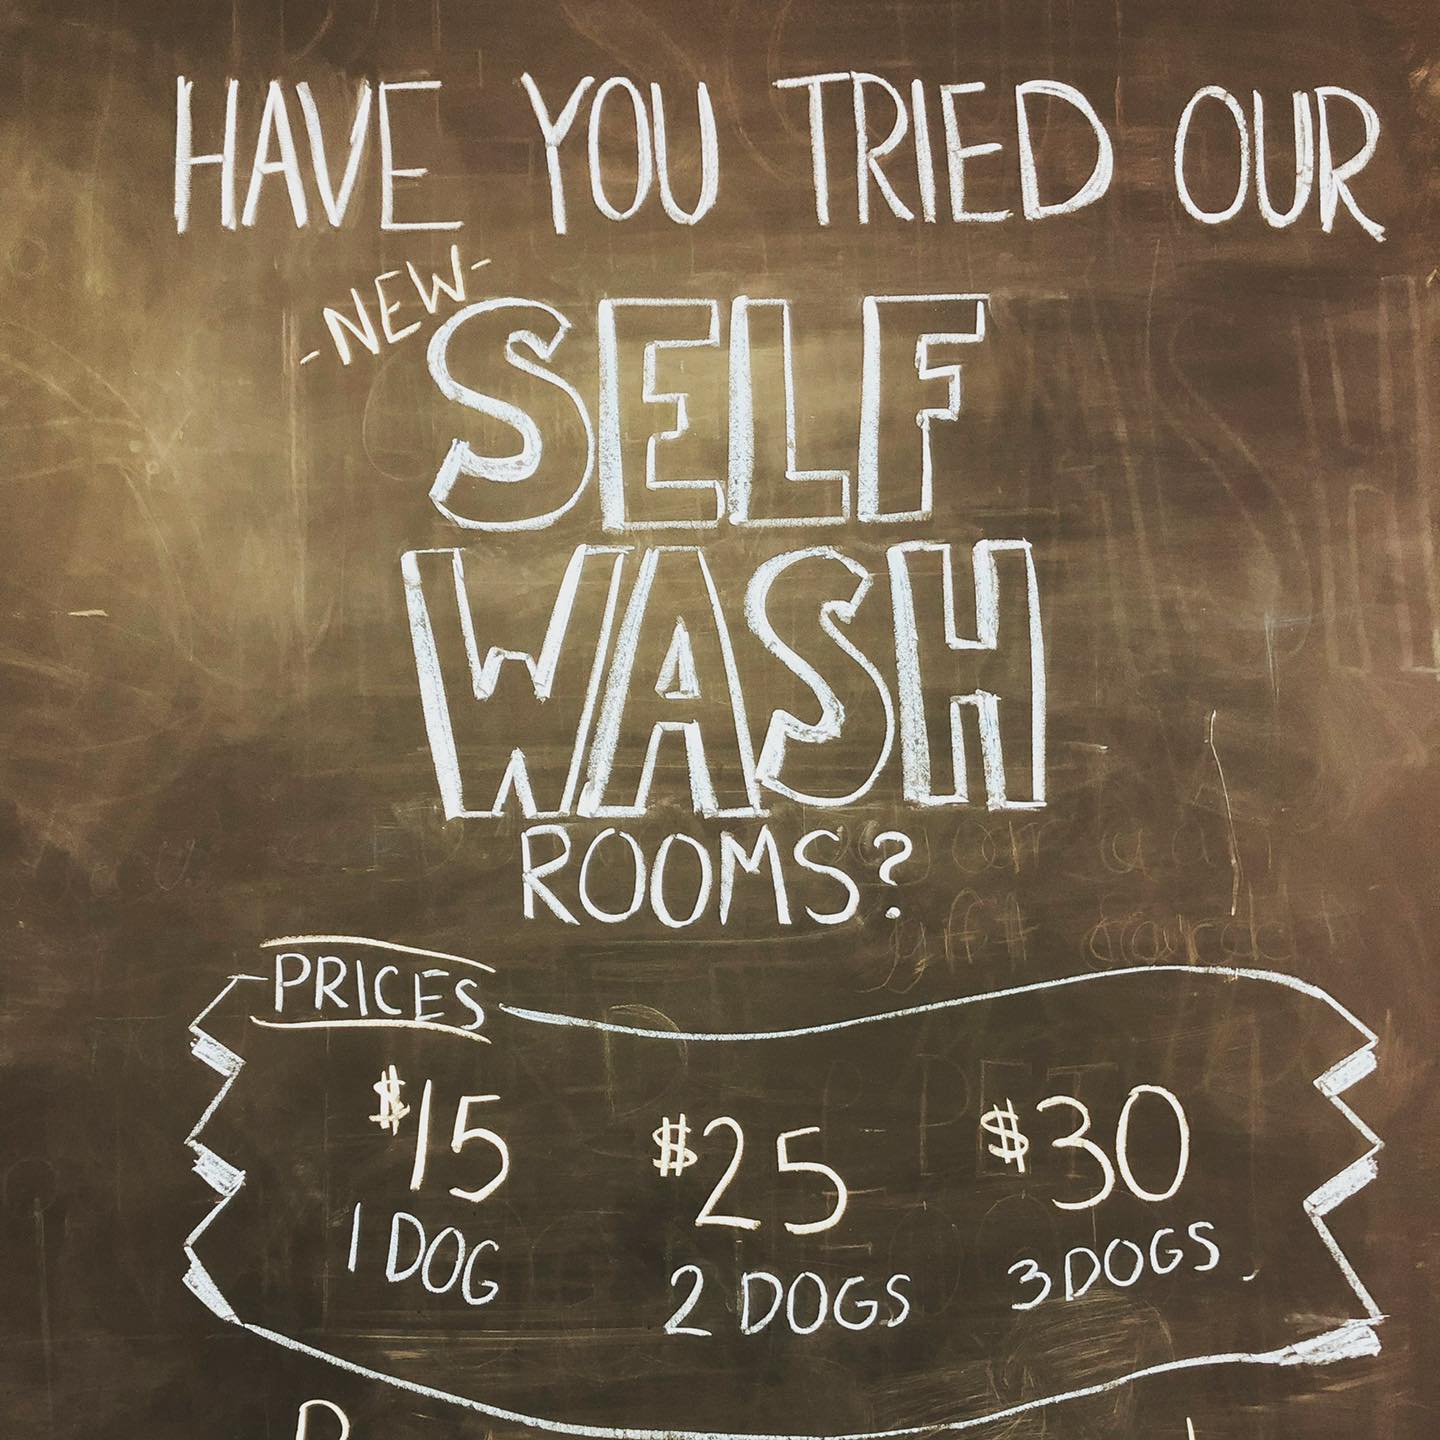 HAVE YOU TRIED OUR
-NEW-
SELF
WASH
ROOMS?
PRICES
$15 $25 $30
1 DOG 2 DOGS 3 DOGS